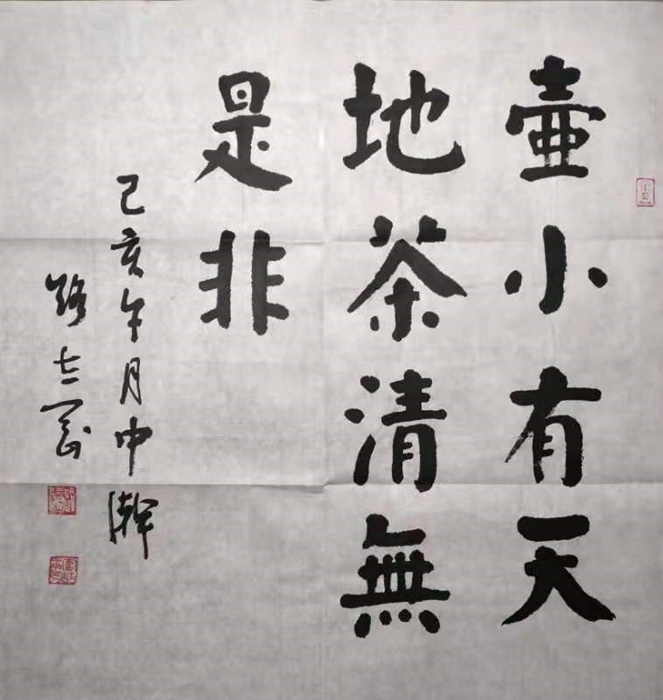 壷小有天
地茶清無
是非
己亥午月中澣
路志